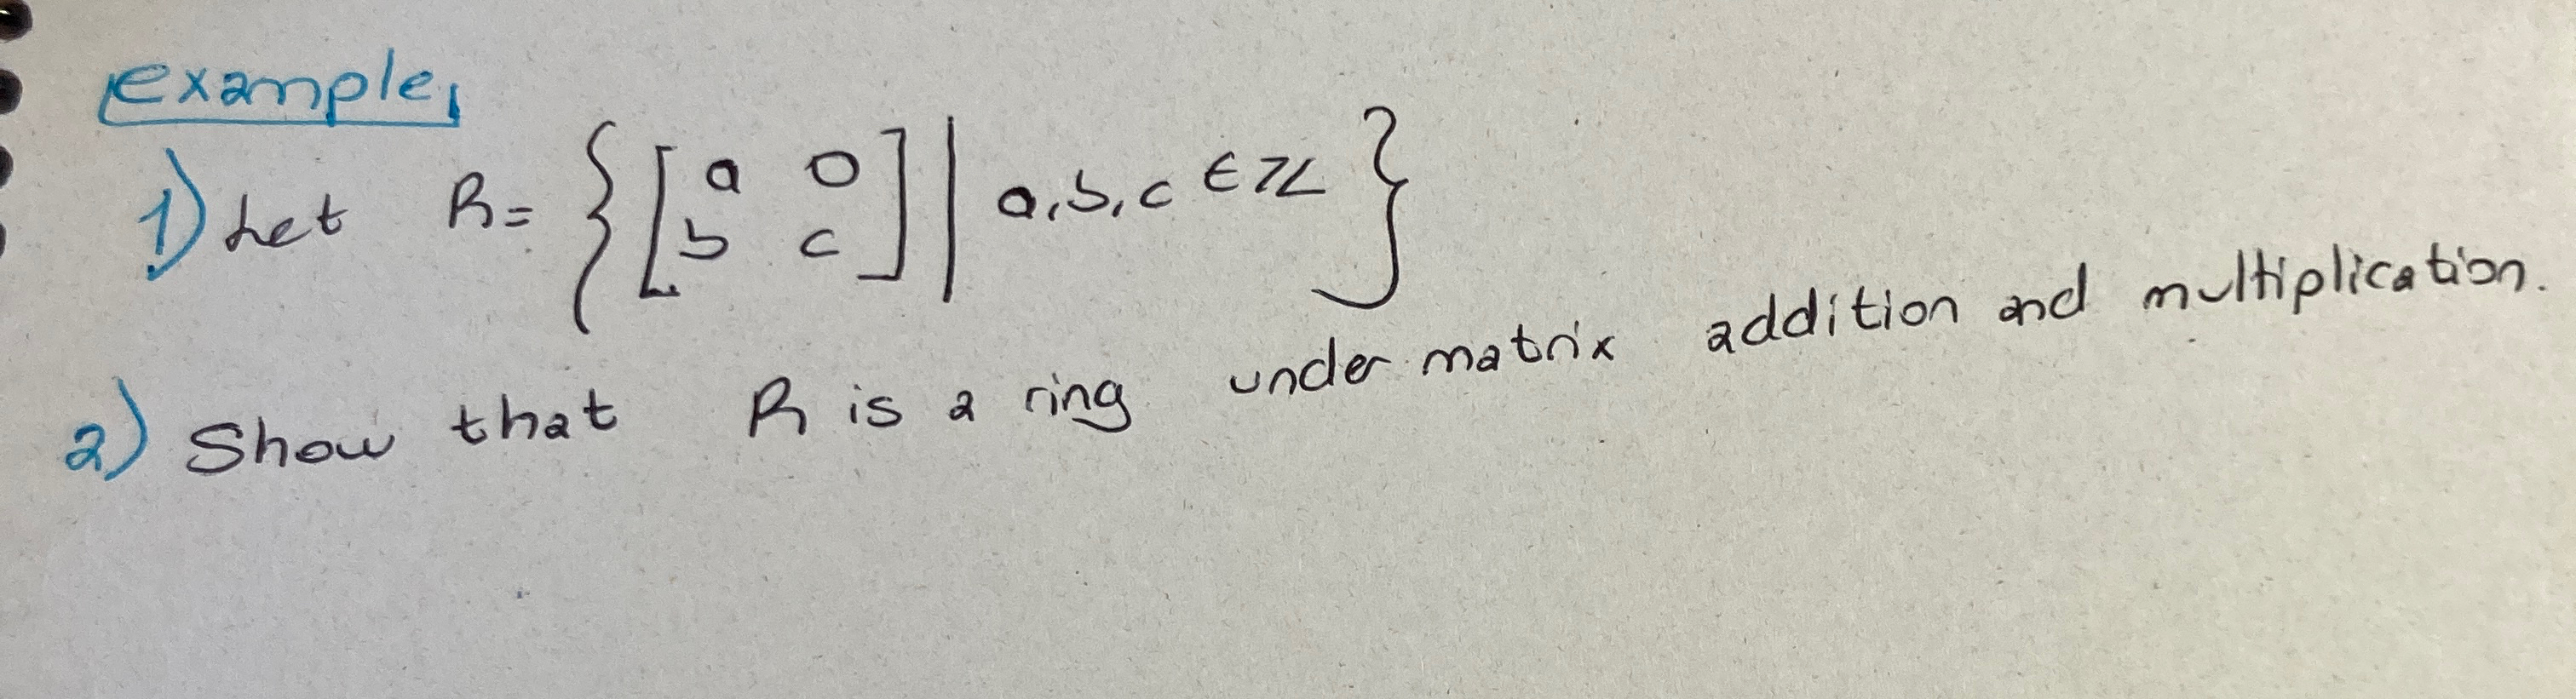 example,
1) Let R = { [ a 0 b c ] | a, b, c ∈ ℤ }
2) Show that R is a ring under matrix addition and multiplication.